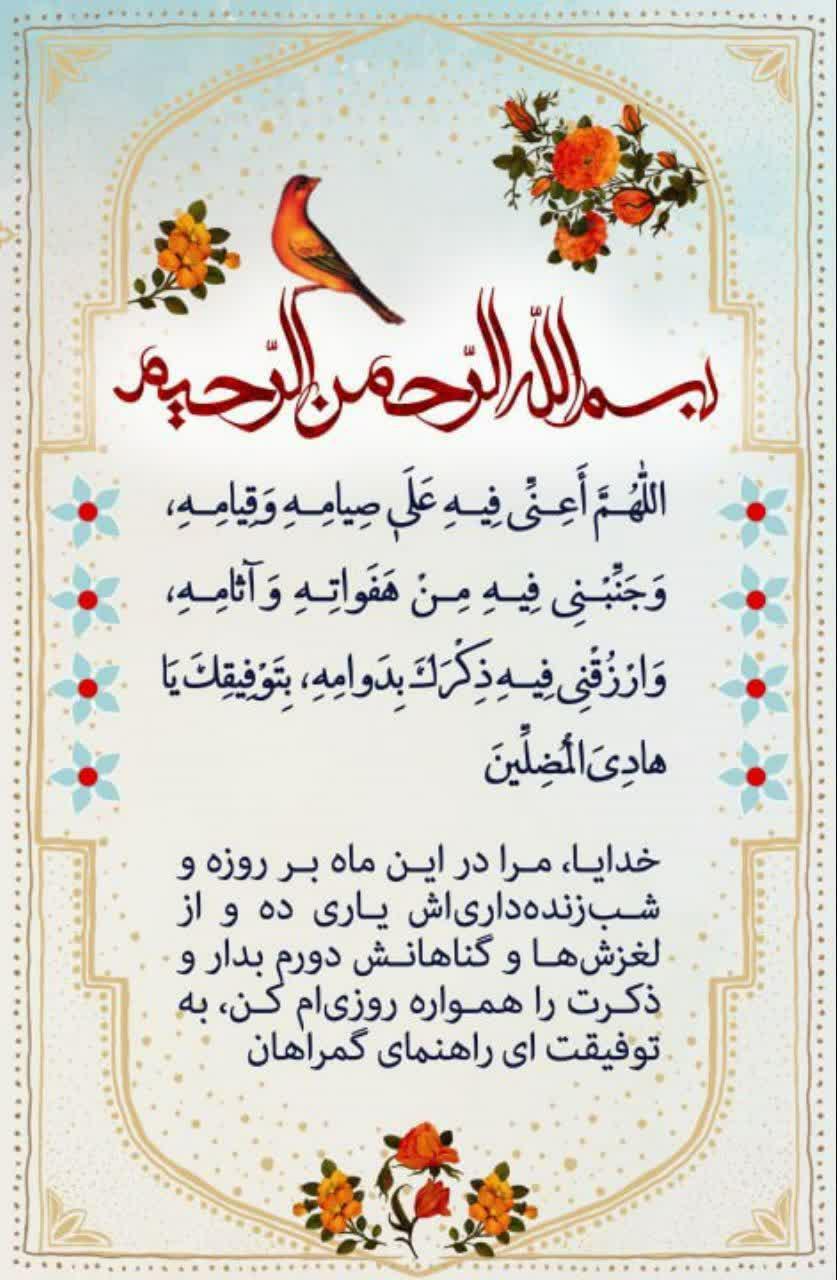 بسم الله الرّحمن الرّحیم
اللّٰهُمَّ أَعِنِّی فِیهِ عَلَیٰ صِیامِهِ وَقِیامِهِ،
وَجَنِّبْنِی فِیهِ مِنْ هَفَواتِهِ وَ آثامِهِ،
وَارْزُقْنِی فِیهِ ذِکْرَکَ بِدَوامِهِ، بِتَوْفِیقِکَ یَا
هادِیَ الْمُضِلِّینَ
خدایا، مرا در این ماه بر روزه و
شب‌زنده‌داری‌اش یاری ده و از
لغزش‌ها و گناهانش دورم بدار و
ذکرت را همواره روزی‌ام کن، به
توفیقت ای راهنمای گمراهان